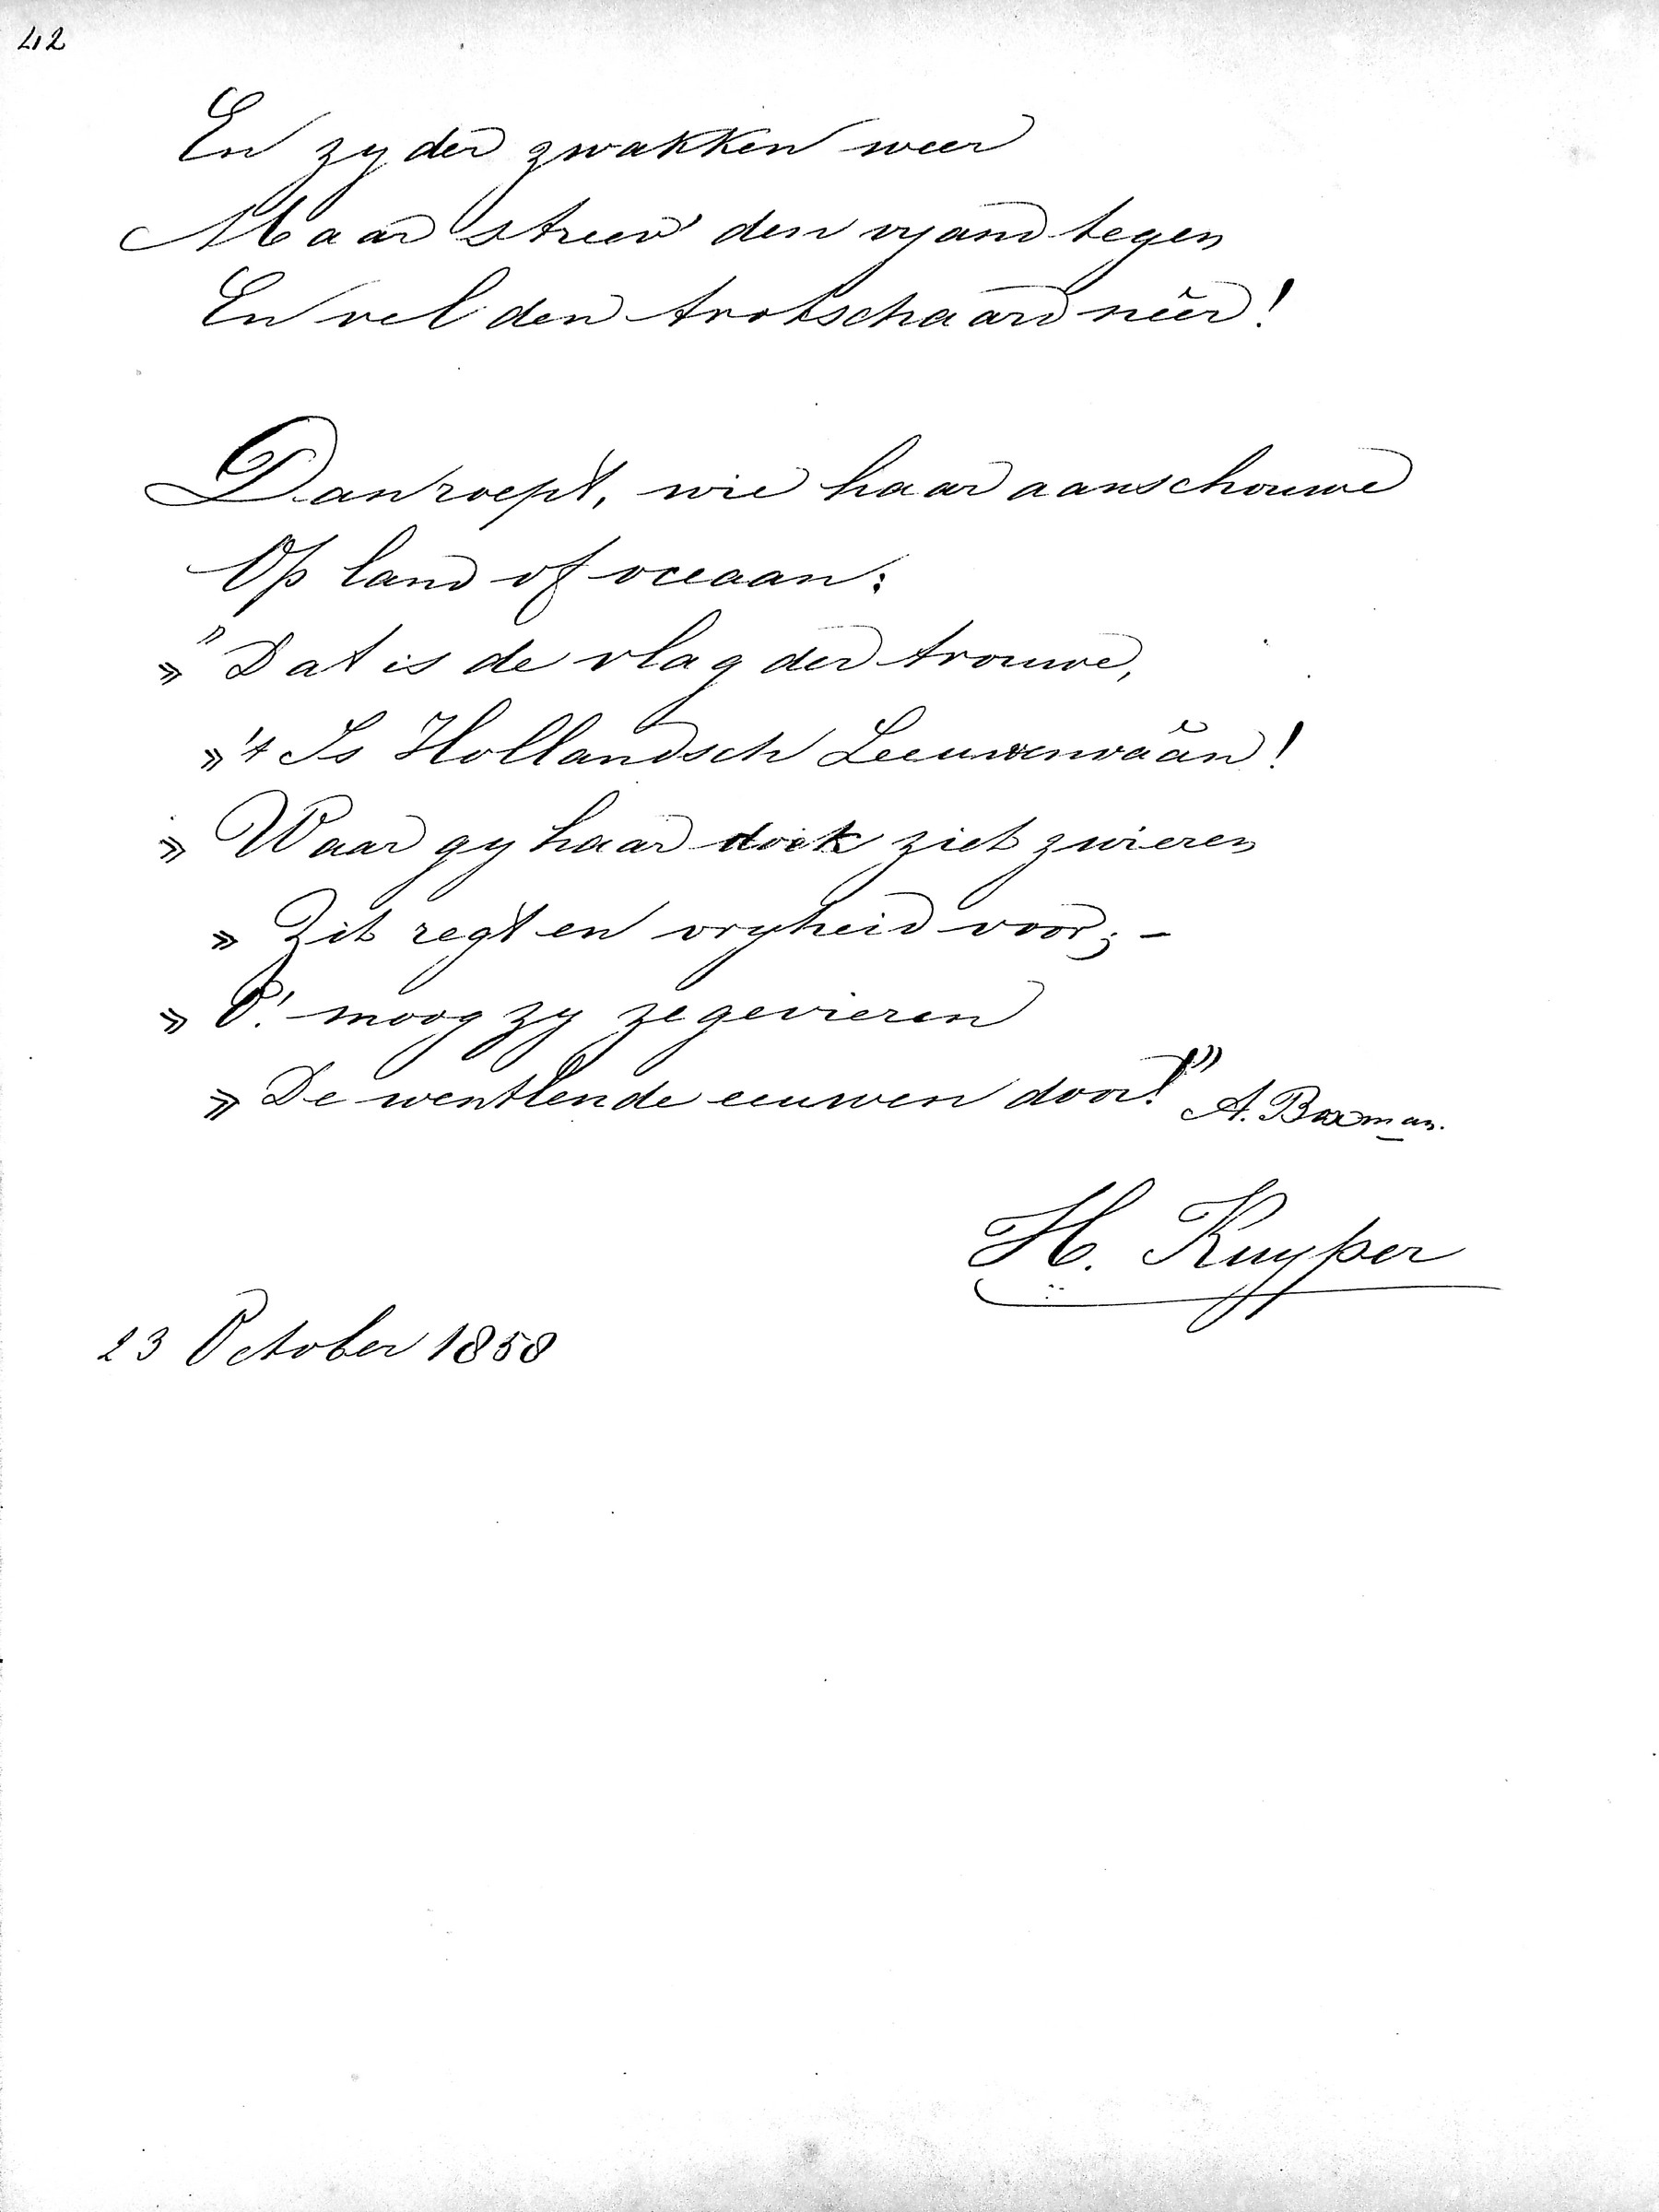 42
En zy der zwakken weer
Maar streev' den vyand tegen
En vel den trotschaard neêr!
Dan roept, wie haar aanschouwe
Op land of oceaan:
» "Dat is de vlag der trouwe,
» 't Is Hollandsch Leeuwenvaân!
» Waar gy haar doek ziet zwieren
» Zit regt en vryheid voor; –
» O! moog zy zegevieren
» De wentlende eeuwen door!" A. Boxman.
H. Kuyper
23 October 1858